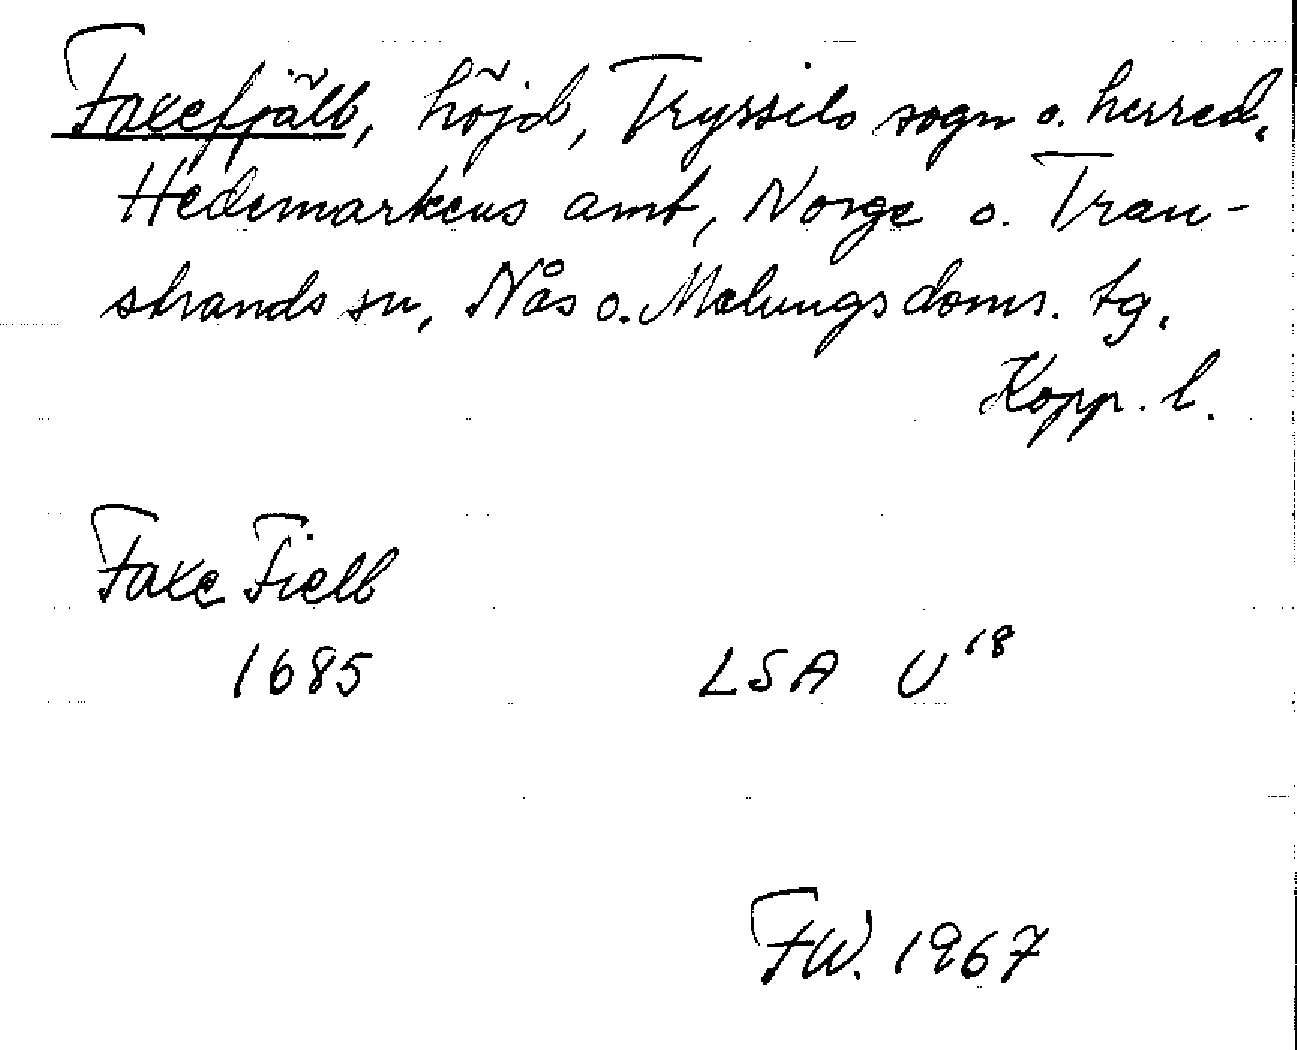 Faxefjäll, höjd, Tryssils sogn o. herred.
Hedemarkens amt, Norge o. Tran-
strands sn, Nås o. Malungs doms. tg.
Kopp. l.
Faxe Fiell
1685 LSA U 18
FW. 1967